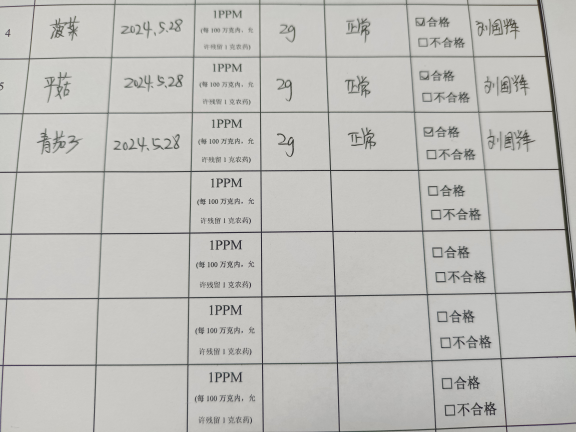 4 菠菜 2024.5.28 1PPM (每 100 万克内，允许残留 1 克农药) 2g 正常 ☑合格 □不合格 刘国辉
5 平菇 2024.5.28 1PPM (每 100 万克内，允许残留 1 克农药) 2g 正常 ☑合格 □不合格 刘国辉
青茄子 2024.5.28 1PPM (每 100 万克内，允许残留 1 克农药) 2g 正常 ☑合格 □不合格 刘国辉
1PPM (每 100 万克内，允许残留 1 克农药) □合格 □不合格
1PPM (每 100 万克内，允许残留 1 克农药) □合格 □不合格
1PPM (每 100 万克内，允许残留 1 克农药) □合格 □不合格
1PPM (每 100 万克内，允许残留 1 克农药) □合格 □不合格